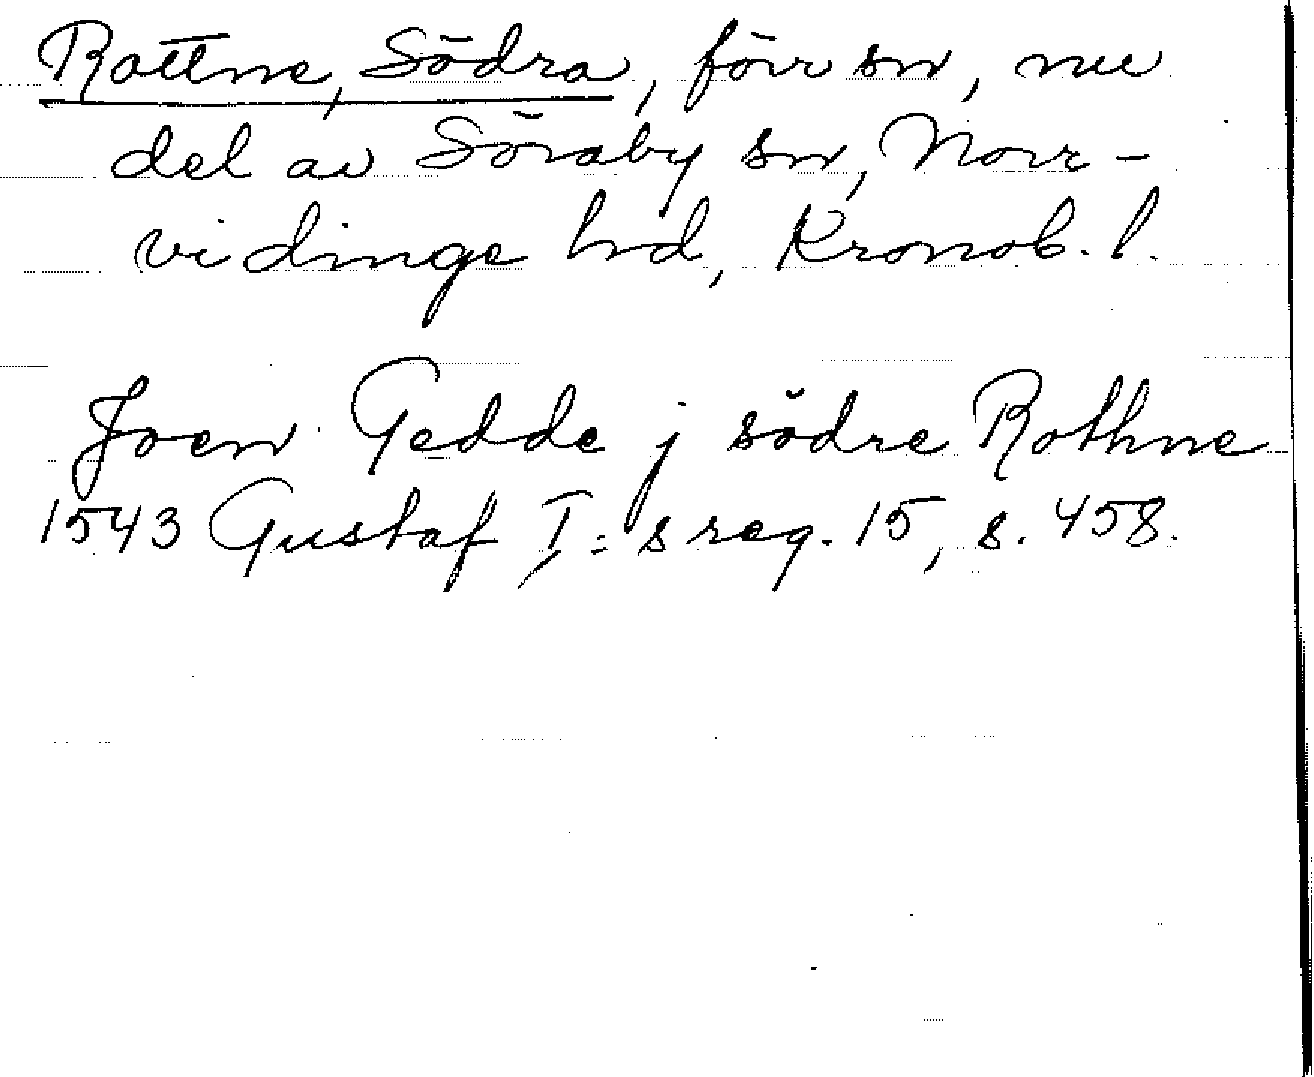 Rottne, Södra, förr sn, nu
del av Söraby sn, Norr-
vidinge hd, Kronob. l.
Joen Gedde j södre Rothne
1543 Gustaf I:s reg. 15, s. 458.